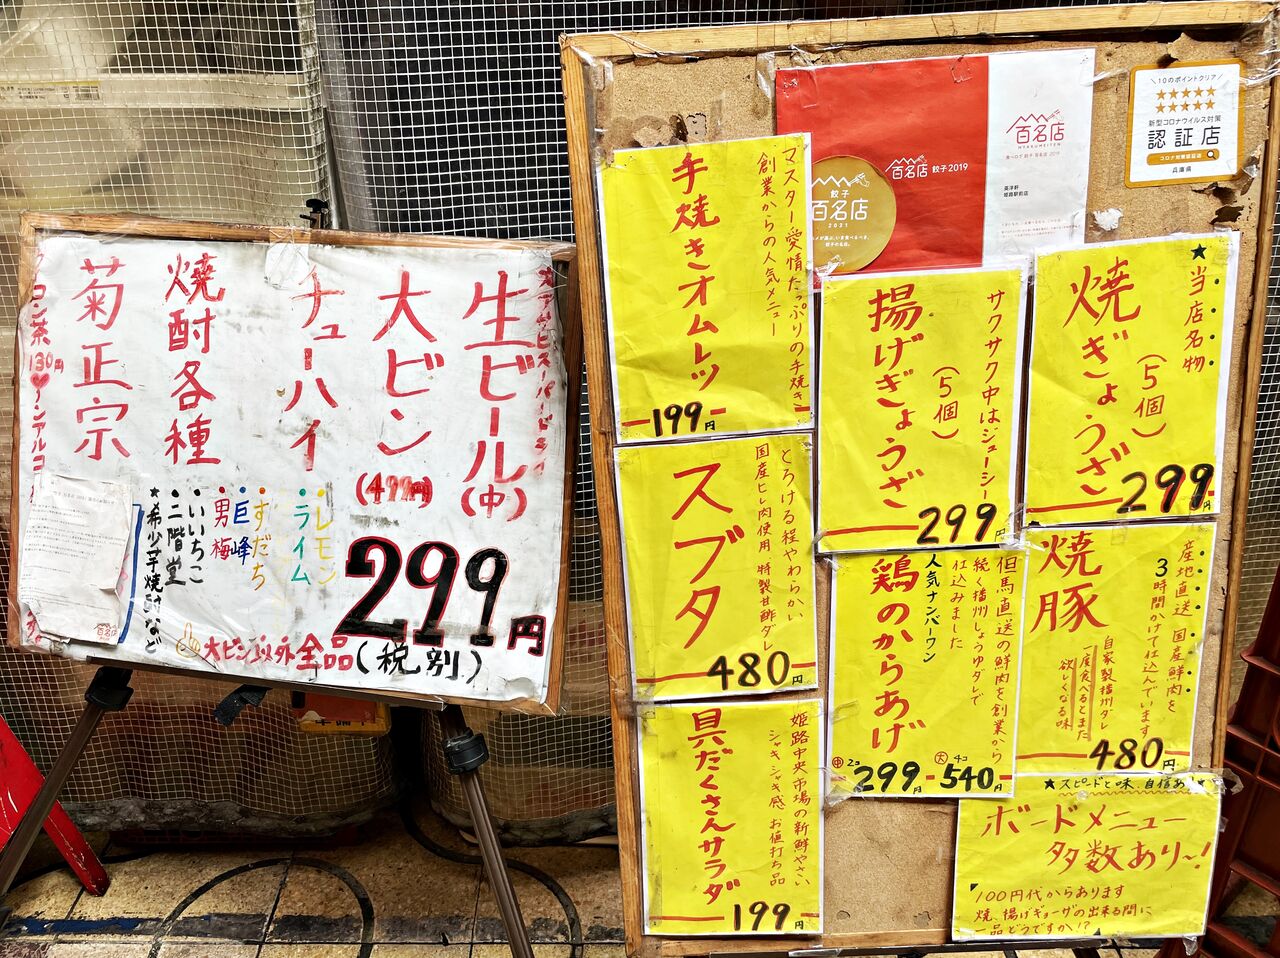 生ビール(中)
大ビン
(499円)
チューハイ
・レモン
・ライム
・すだち
・巨峰
・男梅
焼酎各種
・いいちこ
・二階堂
★希少芋焼酎など
菊正宗
130円
299円
(税別)
大ビン以外全品
百名店
マスター愛情たっぷりの手焼き
創業からの人気メニュー
手焼きオムレツ
199円
百名店 餃子2019
餃子
百名店
2021
百名店
HYAKUMEITEN
食べログ 餃子 百名店 2019
英洋軒
姫路駅前店
10のポイントクリア
★★★★★
★★★★★
新型コロナウイルス対策
認証店
兵庫県
★当店名物
焼ぎょうざ
(5個)
299円
サクサク中はジューシー
揚げぎょうざ
(5個)
299円
とろける程やわらかい
国産ヒレ肉使用 特製甘酢ダレ
スブタ
480円
但馬直送の鮮肉を創業から
続く播州しょうゆダレで
仕込みました
人気ナンバーワン
鶏のからあげ
中 2コ 299円
大 4コ 540円
産地直送 国産鮮肉を
3時間かけて仕込んでいます
自家製播州ダレ
一度食べるとまた
欲しくなる味
焼豚
480円
姫路中央市場の新鮮やさい
シャキシャキ感 お値打ち品
具だくさんサラダ
199円
★スピードと味、自信あり★
ボードメニュー
多数あり〜!
100円代からあります
焼、揚げギョーザの出来る間に
一品どうですか!?